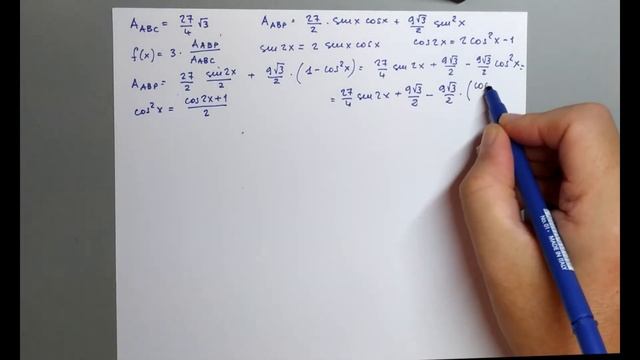 A_ABC = 27/4 √3    A_ABP = 27/2 · sin x cos x + 9√3/2 sin²x
f(x) = 3 · A_ABP/A_ABC    sin 2x = 2 sin x cos x    cos 2x = 2 cos²x - 1
A_ABP = 27/2 sin 2x/2 + 9√3/2 · (1 - cos²x) = 27/4 sin 2x + 9√3/2 - 9√3/2 cos²x =
cos²x = cos 2x + 1/2    = 27/4 sin 2x + 9√3/2 - 9√3/2 · (cos
No 61 - MADE IN ITALY